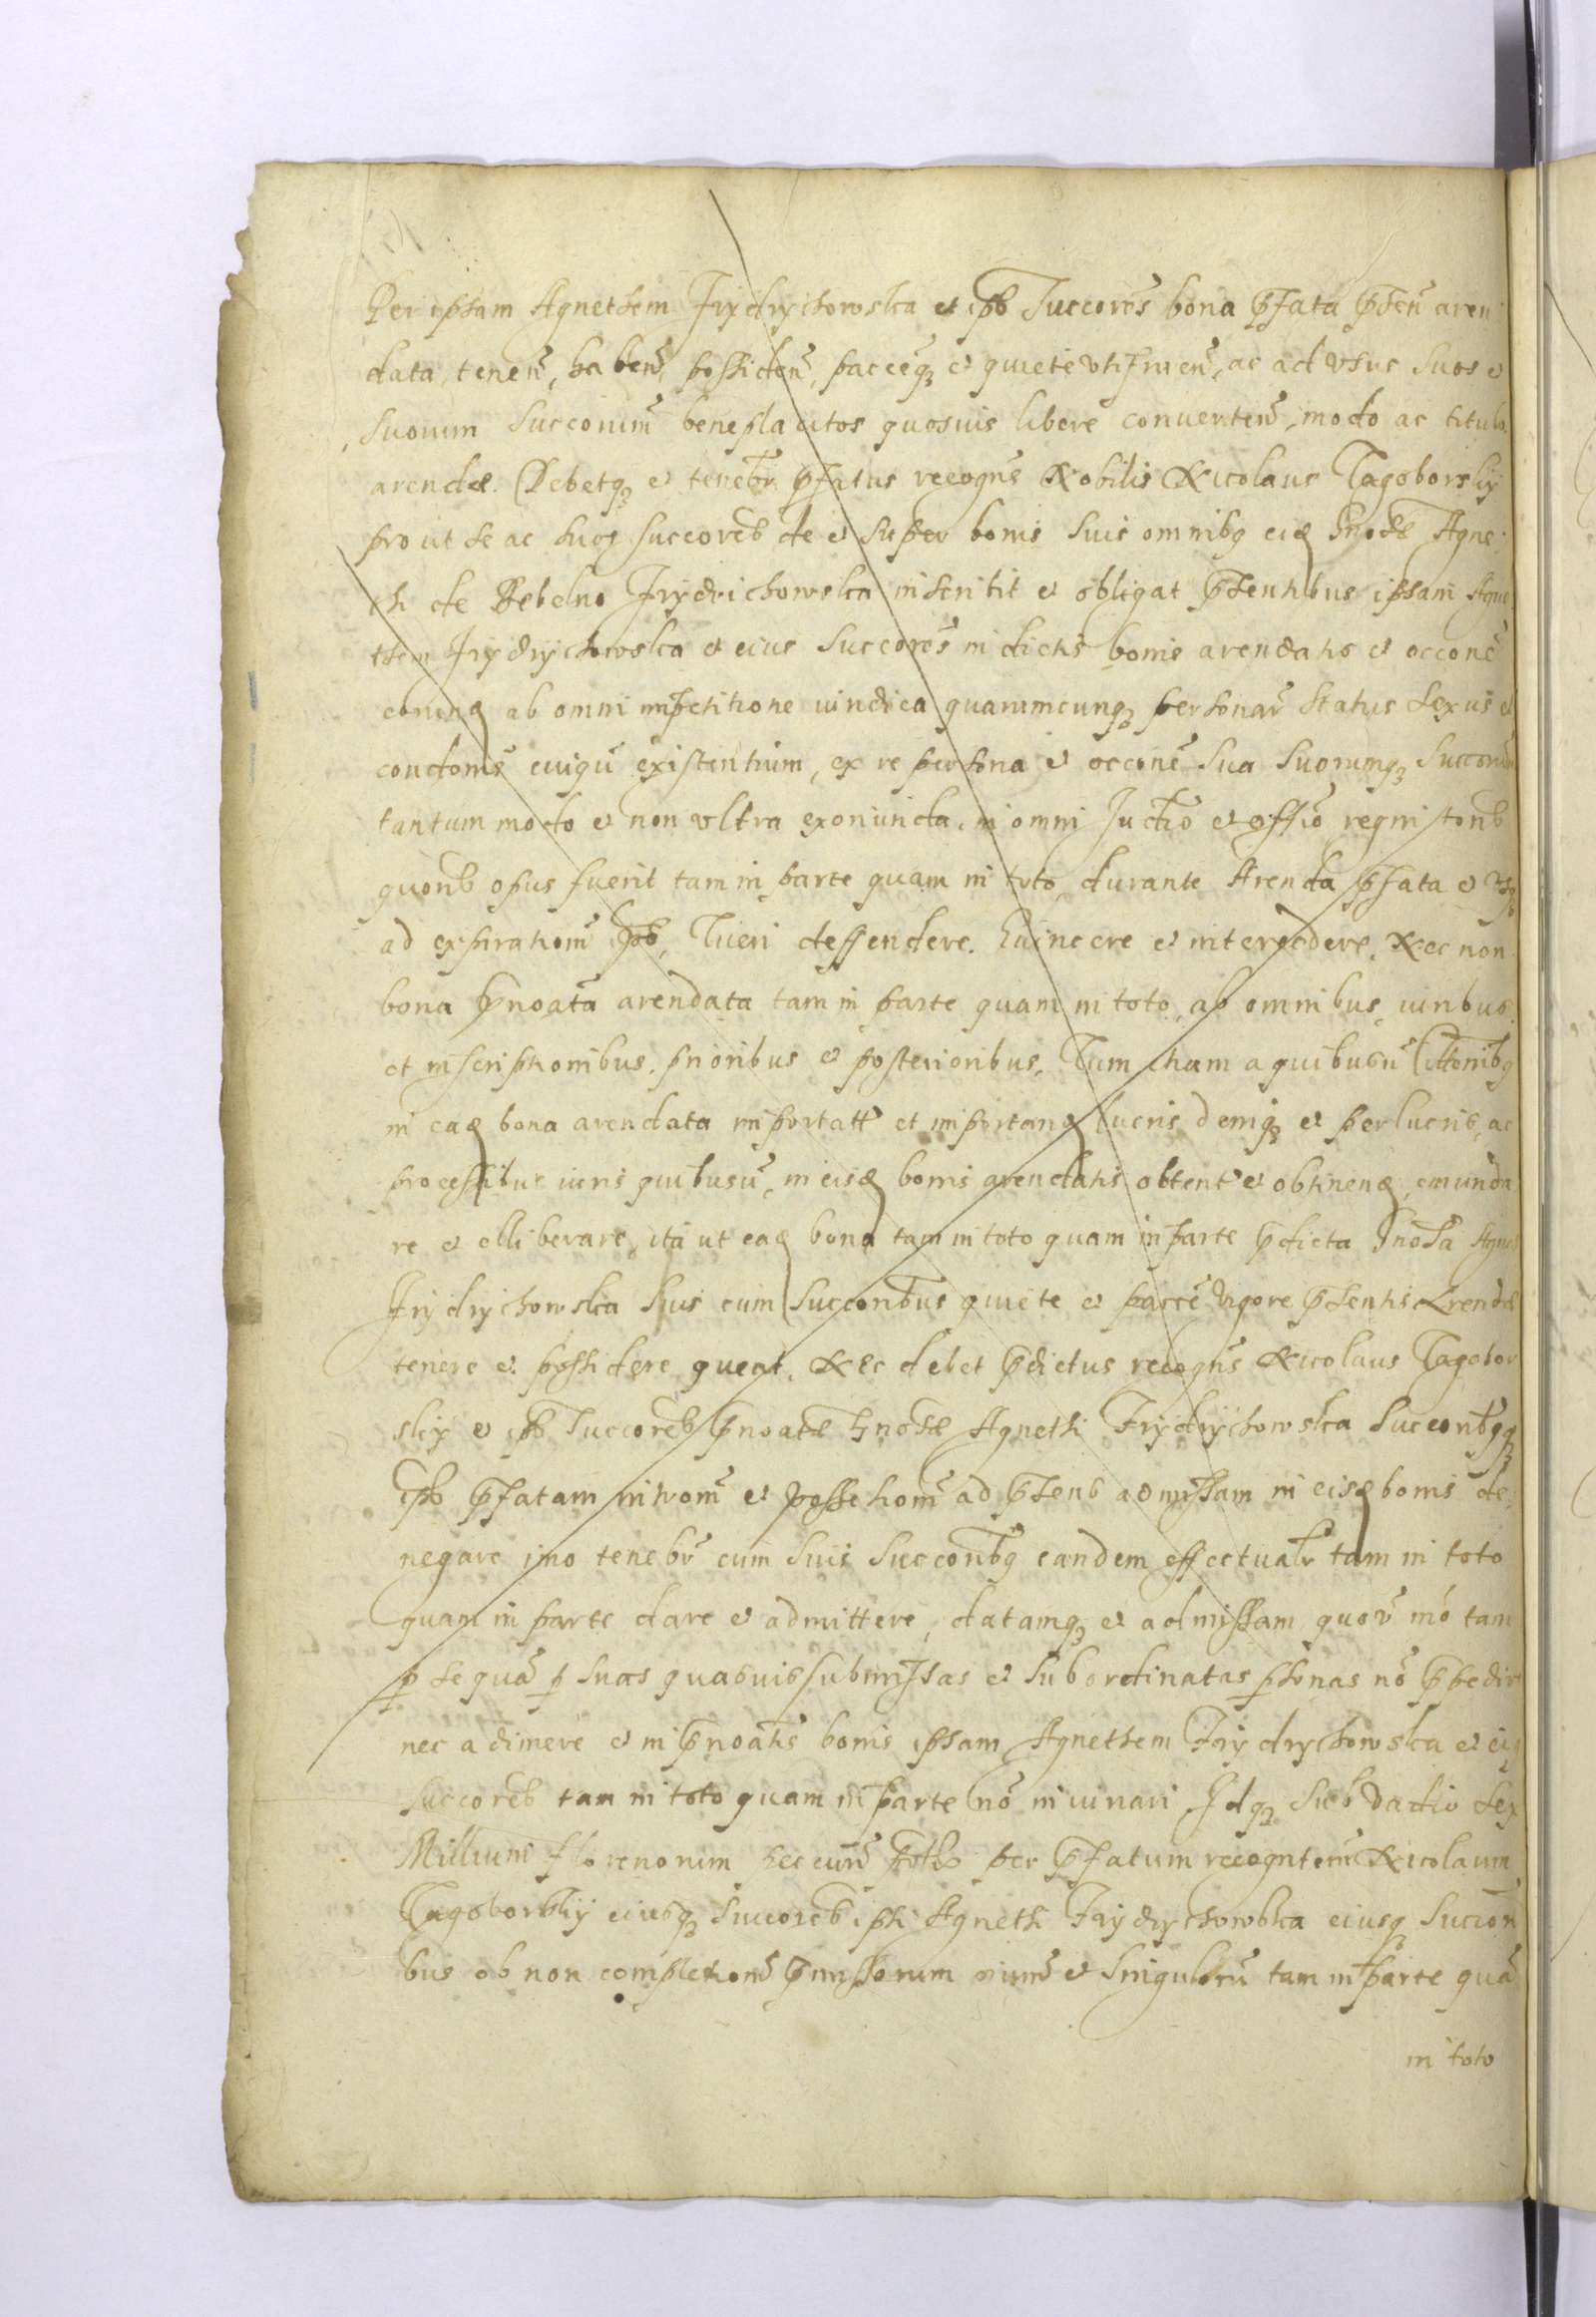 Per ipsam Agnethem Frydrychowska et ip̃o Succores̃ bona p̃fata p̃sen̄ aren
data, tenen̄, haben̄, possiden̄, pacceq₃ et quiete vtifruen̄, ac ad vsus suos et
suorum succorum̃ beneplacitos quosuis libere conuerten̄, modo ac titulo
arendæ. Debetq₃ et tenebr̃ p̃fatus recogn̄s Nobilis Nicolaus Tagoborsky
prout se ac suos succores̃ de et super bonis suis omnibq eid̃ Gnosæ Agne
thi de Bebelno Frydrichowska inscribit et obligat p̃sentibus ipsam Agne
them Frydrychowska et eius Succores̃ in dictis bonis arendatis et occonẽ
eorund̃ ab omni impetitione iuridica quarumcunq₃ personar̃ status sexus et
condonis̃ cuiqũ existentium, ex re persona et occonẽ sua suorumq₃ succorum̃
tantummodo et non vltra exoriunda, in omni Judio̅ et offio̅ regni
quonb opus fuerit tam in parte quam in toto, durante Arenda p̃fata et vsq₃
ad expirationem̃ ip̃o, Tueri deffendere. Euincere et intercedere. Nec non
bona p̃noata̅ arendata tam in parte quam in toto, ab omnibus, iuribus
et inscriptionibus, prioribus et posterioribus, Tum etiam a quibusu̅ Cittonibq
in ead̃ bona arendata importatt et importand̃ lucris deniq₃ et perlucris, ac
processibus iuris quibusu̅, in eisd̃ bonis arendatis obtent et obtinend̃, emunda
re et elliberare, ità ut ead̃ bona tam in toto quam in parte p̃dicta Gnosa Agnes
Frydrychowska suis cum succoribus quiete et pacce̅ vigore p̃sentis Arendæ
tenere et possidere queat. Nec debet p̃dictus recogn̄s Nicolaus Tagobor
sky et ip̃o Succores̃ p̃noatæ Gnosæ Agnethi Frydrychowska Succoribqq₃
ip̃o p̃fatam intrõm et possessionem̃ ad p̃sens admissam in eisd̃ bonis de
negare imo tenebr̃ cum suis succoribq eandem effectualr̃ tam in toto
quam in parte dare et admittere, datamq₃ et admissam quov̅ mo̅ tam
p se qua̅ p suas quasuis submissas et subordinatas psonas no̅ p̃pedire
nec adimere et in p̃noatis bonis ipsam Agnethem Frydrychowska et eiq
succores̃ tam in toto quam in parte no̅ iniuriari Idq₃ sub vadio sex
Millium florenorum per p̃fatum recognitem̃ Nicolaum
Tagoborsky eiusq₃ Succores̃ ipsi Agnethi Frydrychowska eiusq₃ Succori
bus ob non completionem̃ p̃missorum oium̃ et singuloru̅ tam in parte qua̅
in toto